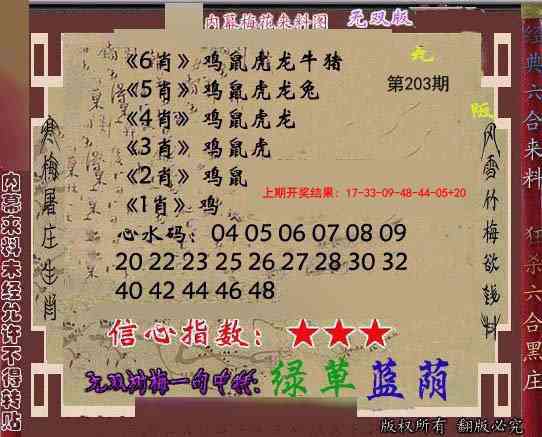 内幕梅花来料图 无双版
《6肖》鸡鼠虎龙牛猪
《5肖》鸡鼠虎龙兔
《4肖》鸡鼠虎龙
《3肖》鸡鼠虎
《2肖》鸡鼠
《1肖》鸡
第203期
上期开奖结果：17-33-09-48-44-05+20
心水码：04 05 06 07 08 09
20 22 23 25 26 27 28 30 32
40 42 44 46 48
信心指数：★★★
无双刘梅一句中特：绿草蓝荫
寒梅屠庄生肖
风雪竹梅欲钱料
内幕来料未经允许不得转贴
经典六合来料 狂杀六合黑庄
版权所有 翻版必究